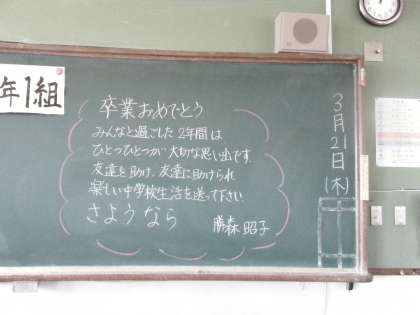 年1組
卒業おめでとう
みんなと過ごした2年間は
ひとつひとつが大切な思い出です.
友達を助け、友達に助けられ
楽しい中学校生活を送って下さい.
さようなら
勝森 昭子
3月21日(木)